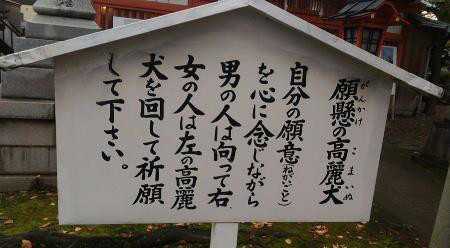 願懸の高麗犬
がんかけ
こまいぬ
自分の願意(ねがいごと)
を心に念じながら
男の人は向って右、
女の人は左の高麗
犬を回して祈願
して下さい。